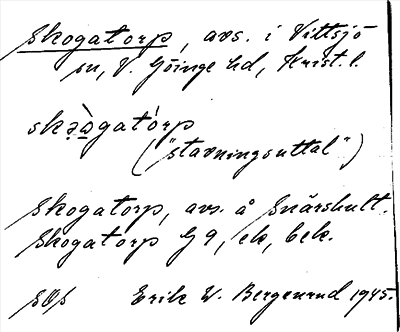 Skogatorp, avs. i Vittsjö
sn, V. Göinge hd, Krist. l.
skə̀ǫgatórp
("stavningsuttal")
Skogatorp, avs. å Snärshult.
Skogatorp G 9, ek, bek.
Erik W. Bergenrud 1945.